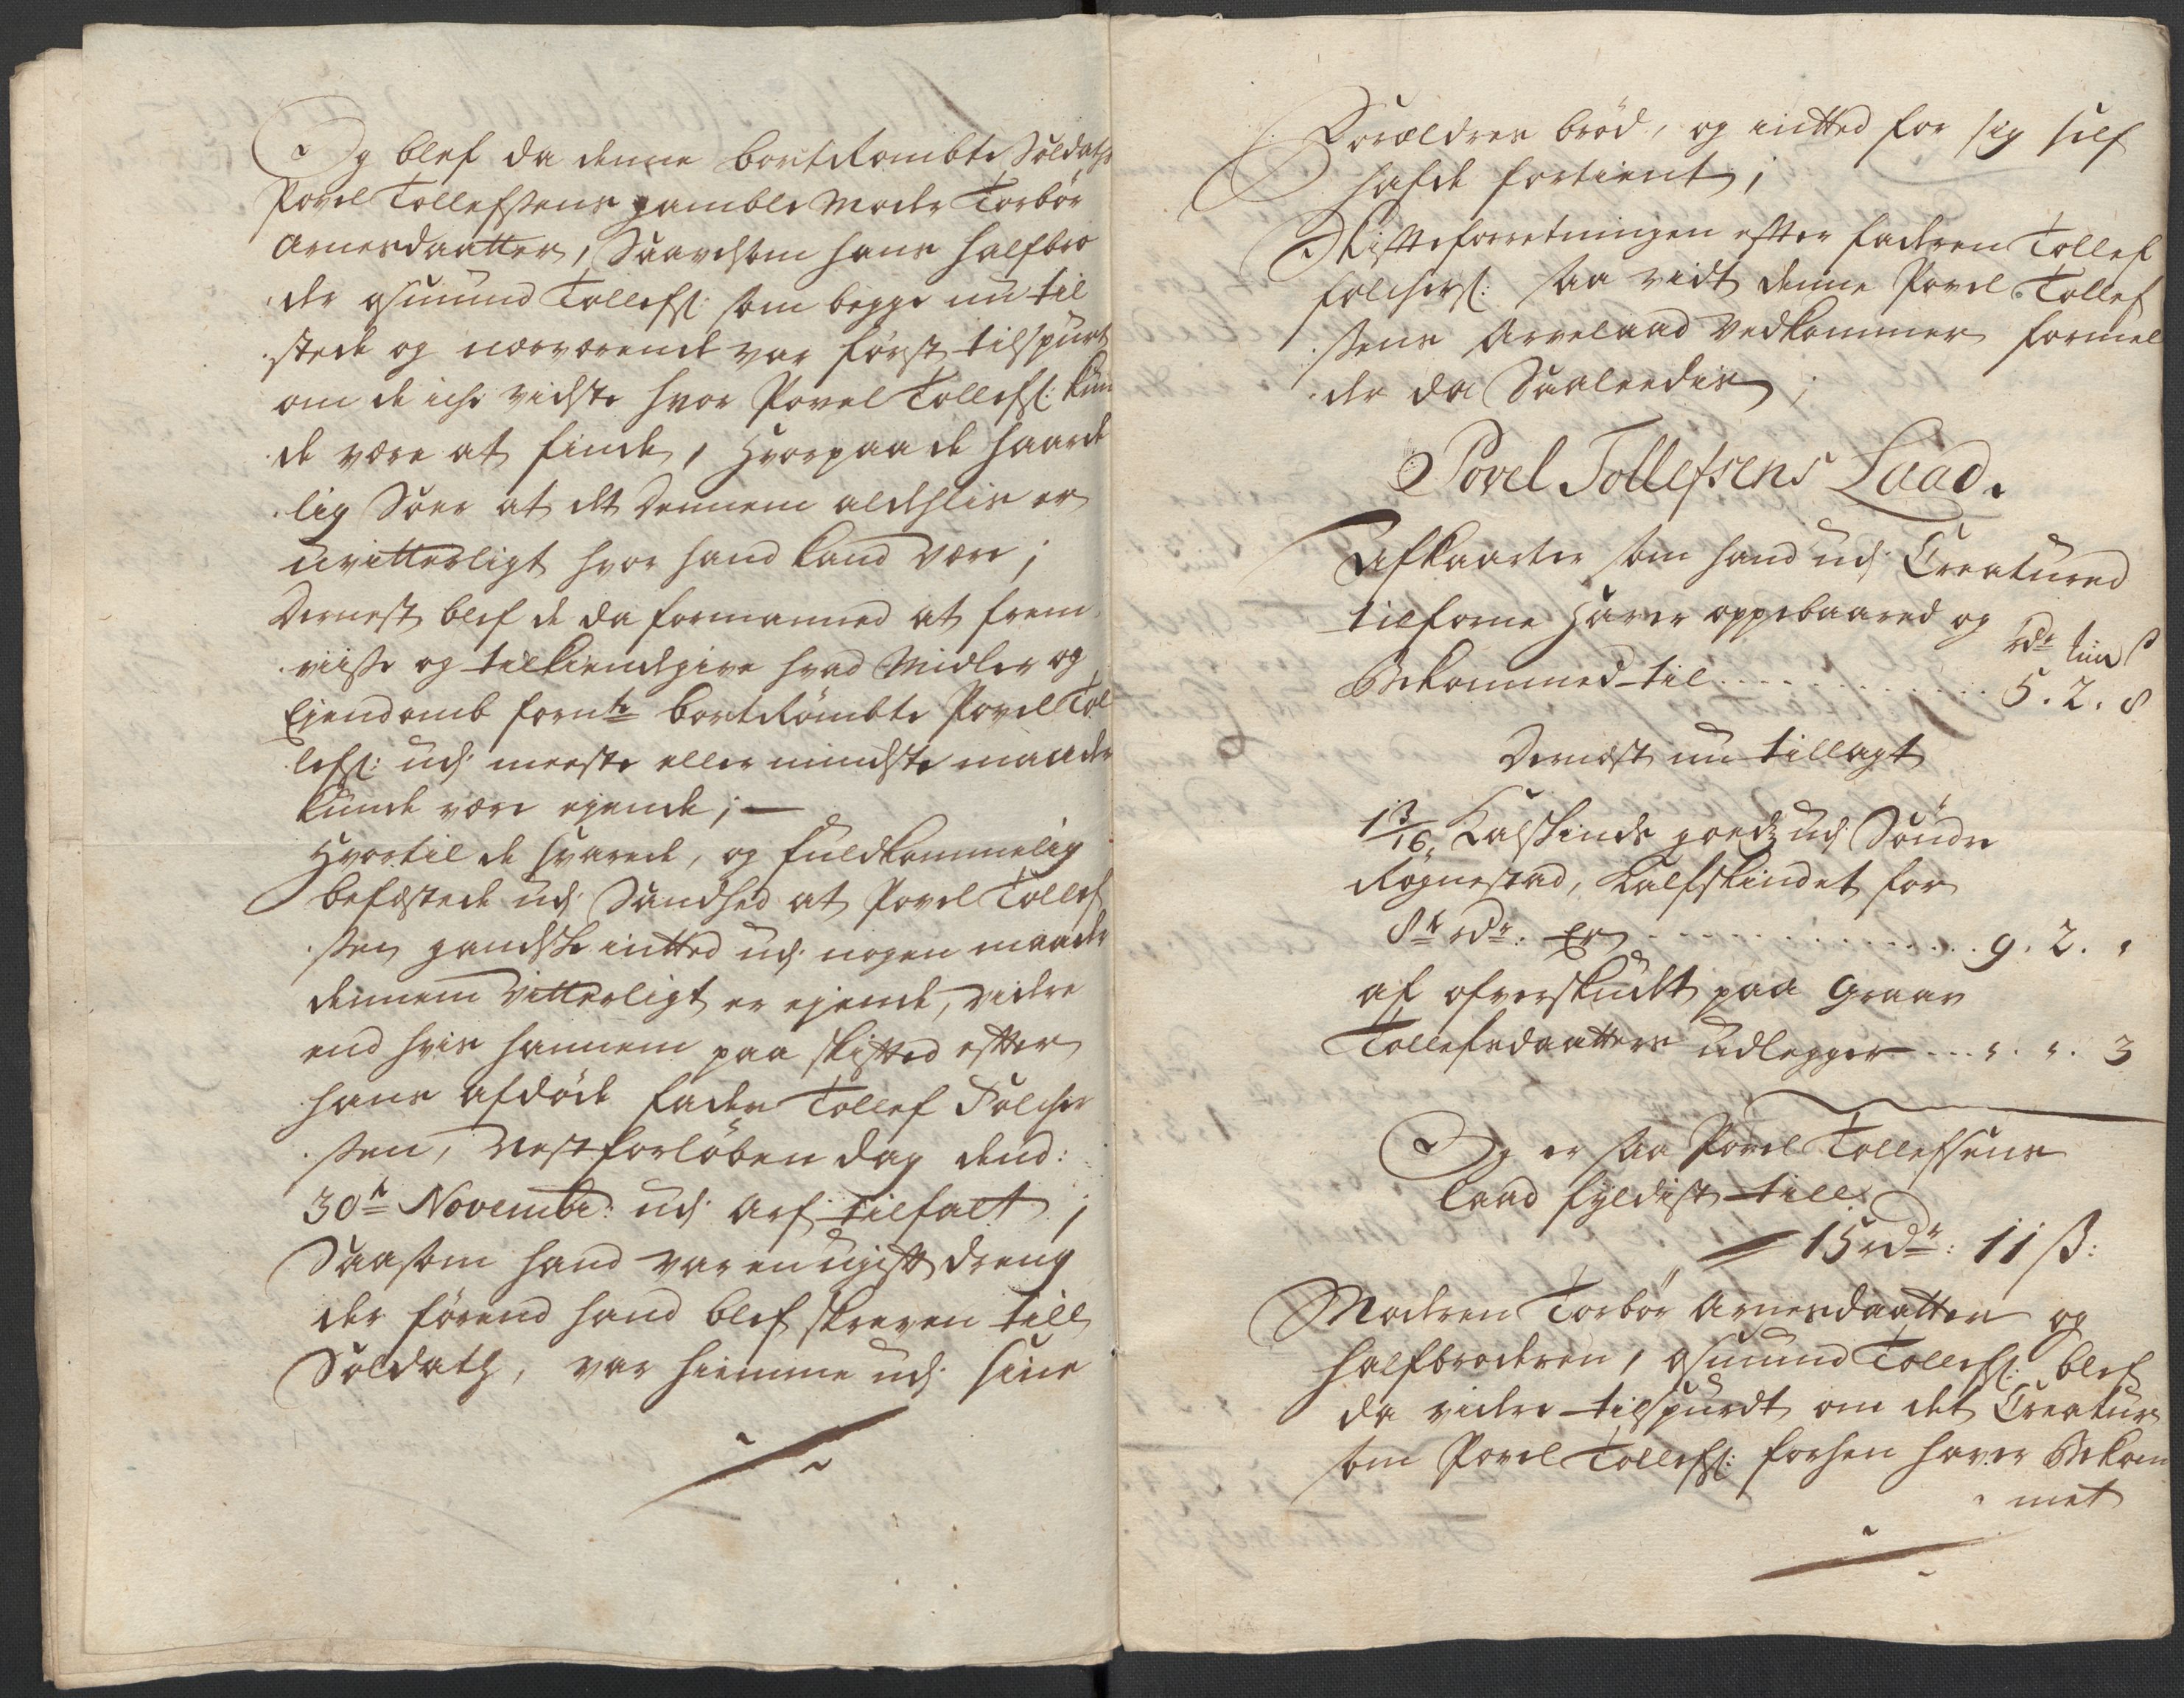 Og blef da denne bortrömbte Soldats
Povel Tollefsens gamble Moder Torbör
Arnesdaatter, Saavelsom hans halfbro
der Asmund Tollefs: som begge nu til
stede og nærværende var först tilspurt
om de iche vidste hvor Povel Tollefs: kun
de være at finde, Hvorpaa de haarde
lig Soer at det dennem aldelis er
uvitterligt hvor hand kand være;
Dernest blef de da formanned at frem
viisse og tilkiendegive hvad Midler og
Ejendomb fornte bortrömbte Povel Tol
lefs: udj meeste eller mindste maader
kunde være ejende;
Hvortil de svarede, og fuldkommelig
befæstede udj Sandhed at Povel Tollef
sen gandske intted udj nogen maade
dennem vitterligt er ejende, videre
end hvis hannem paa skifted efter
hans afdöde fader Tollef Folcher
sen, nest forlöben dag dend:
30te Novembr: udj Arf tilfalt;
Saasom hand var en ugift dreng
der förend hand blef skreven till
Soldath, var hiemme udj sine
Forældres bröd, og intted for sig self
hafde fortient;
Skifteforretningen efter faderen Tollef
folchers: saa vidt denne Povel Tollef
sens Arvelaad vedkommer formel
der da Saaledis;
Povel Tollefsens Laad.
Afkaarter som hand udj Creatured
tilforne haver oppebaared og
rdr
Bekommed til . . . . 5. 2. 8
Dernest nu tillagt
1 3/16 Kalfskinds goeds udj Söndre
Rögnestad, Kalfskindet for
8te rdr: Er . . . . 9. 2. "
af ofverskudt paa Graav
Tollefsdaatters udlegger . . . ". ". 3
Og er saa Povel Tollefsens
laad fyldist till
15 rdr: 11 ß:
Moderen Torbör Arnesdaatter og
halfbroderen, Asmund Tollefs: blef
da videre tilspurdt om det Creatur
som Povel Tollefs: forhen haver Bekom
met